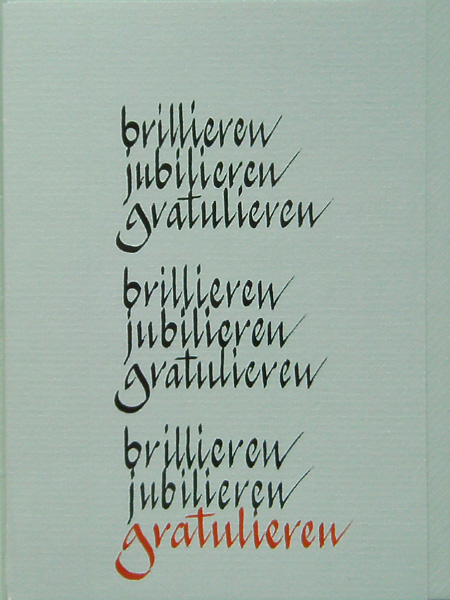 brillieren
jubilieren
gratulieren
brillieren
jubilieren
gratulieren
brillieren
jubilieren
gratulieren